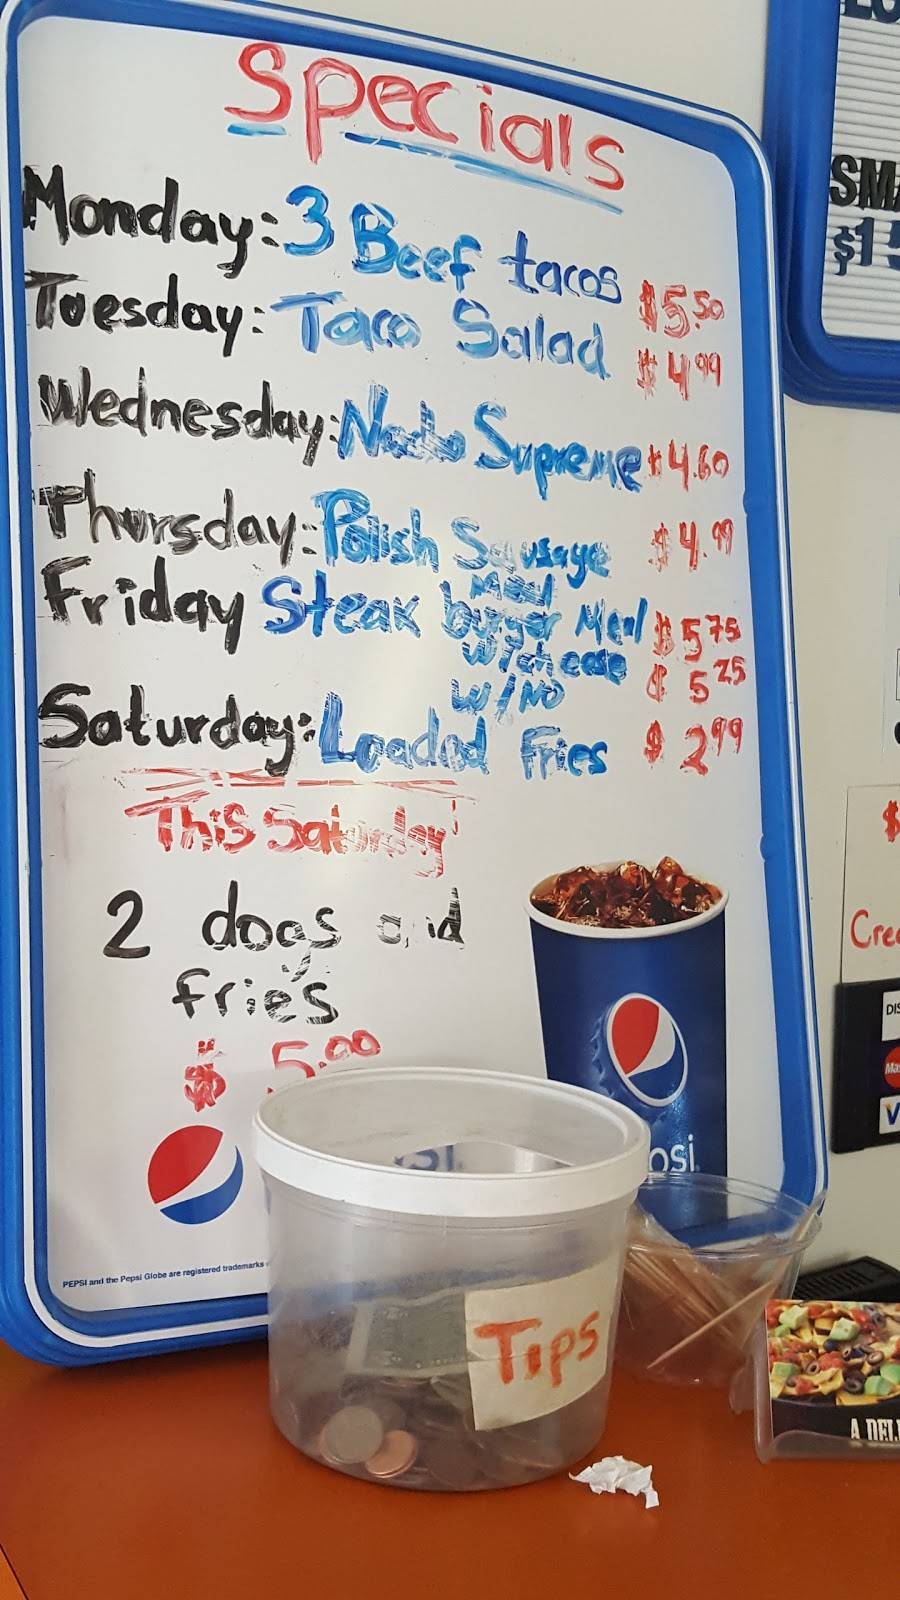 Specials
Monday: 3 Beef tacos $5.50
Tuesday: Taco Salad $4.99
Wednesday: Nacho Supreme $4.60
Thursday: Polish Sausage Meal $4.99
Friday Steak burger Meal $5.75
w/cheese
$5.25
w/NO
Saturday: Loaded Fries $2.99
This Saturday
2 dogs and
fries
$5.00
PEPSI and the Pepsi Globe are registered trademarks
Tips
A DELI
SMA
$1.5
$
Cre
DIS
Mas
V